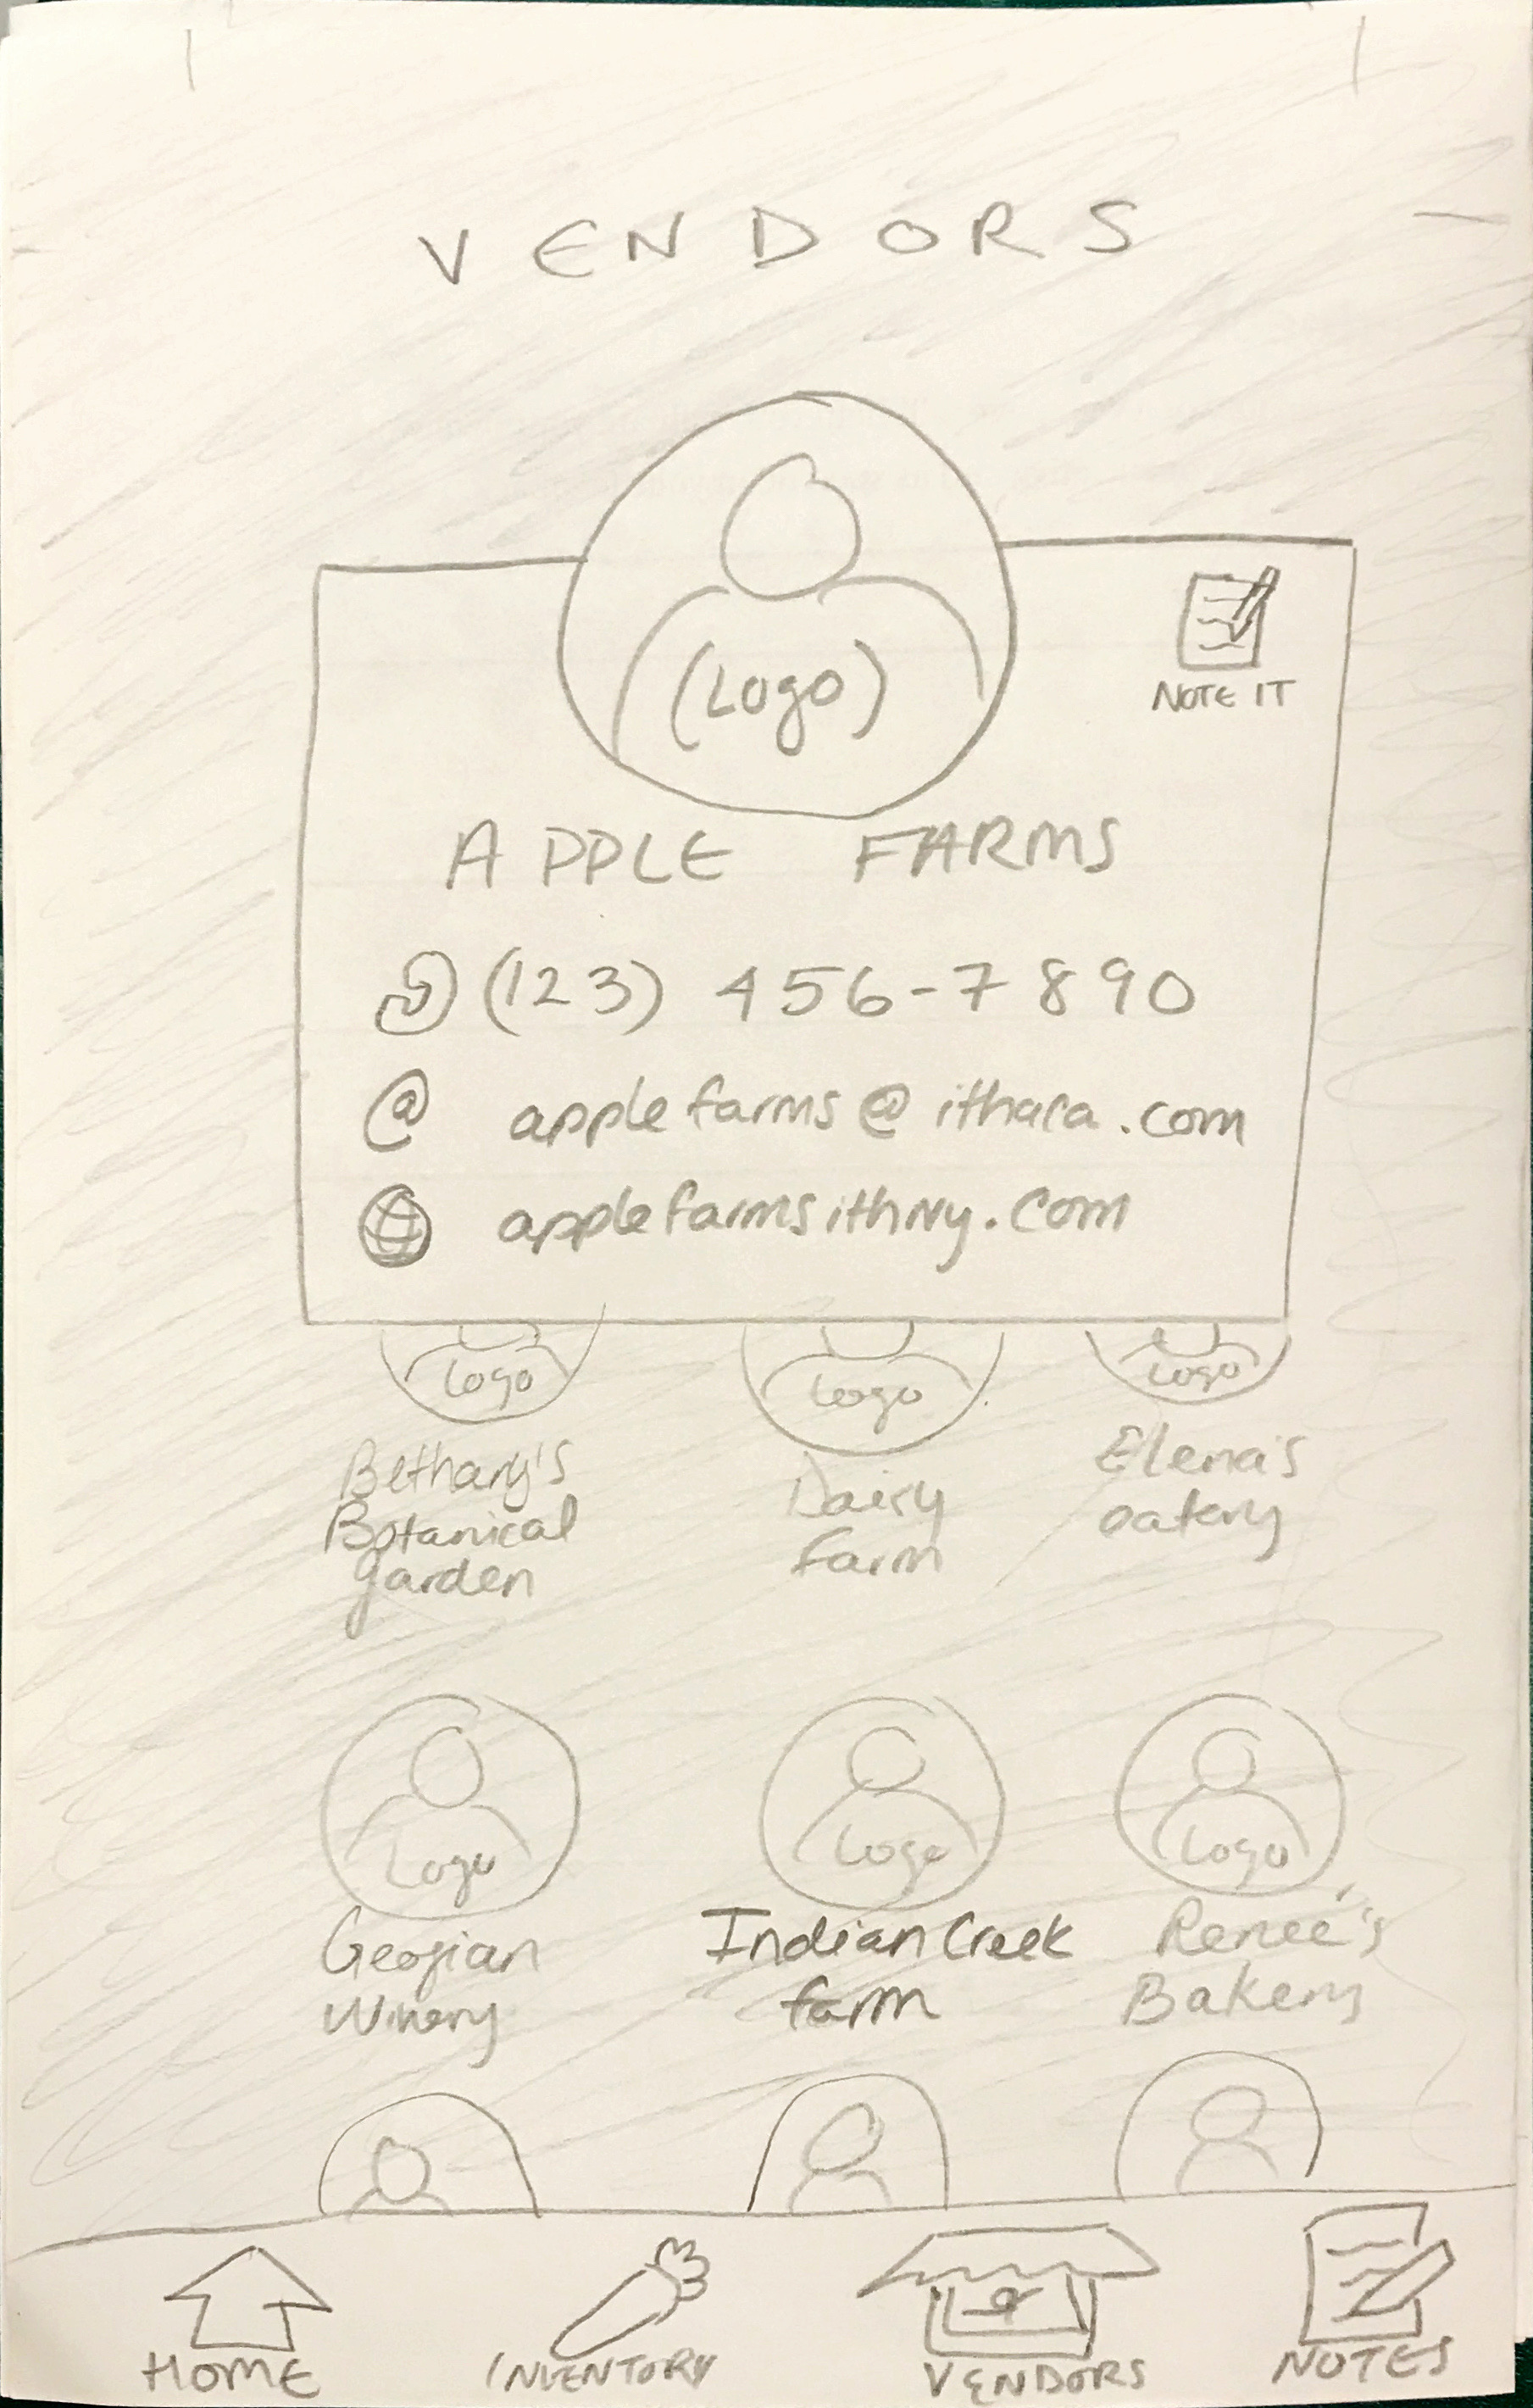 VENDORS
(Logo)
NOTE IT
APPLE FARMS
(123) 456-7890
@ applefarms@ithaca.com
applefarmsithNy.com
Logo Logo Logo
Bethany's
Botanical
garden
Dairy
farm
Elena's
eatery
Logo Logo Logo
Geogian
Winery
Indian Creek
farm
Reneé's
Bakery
HOME INVENTORY VENDORS NOTES